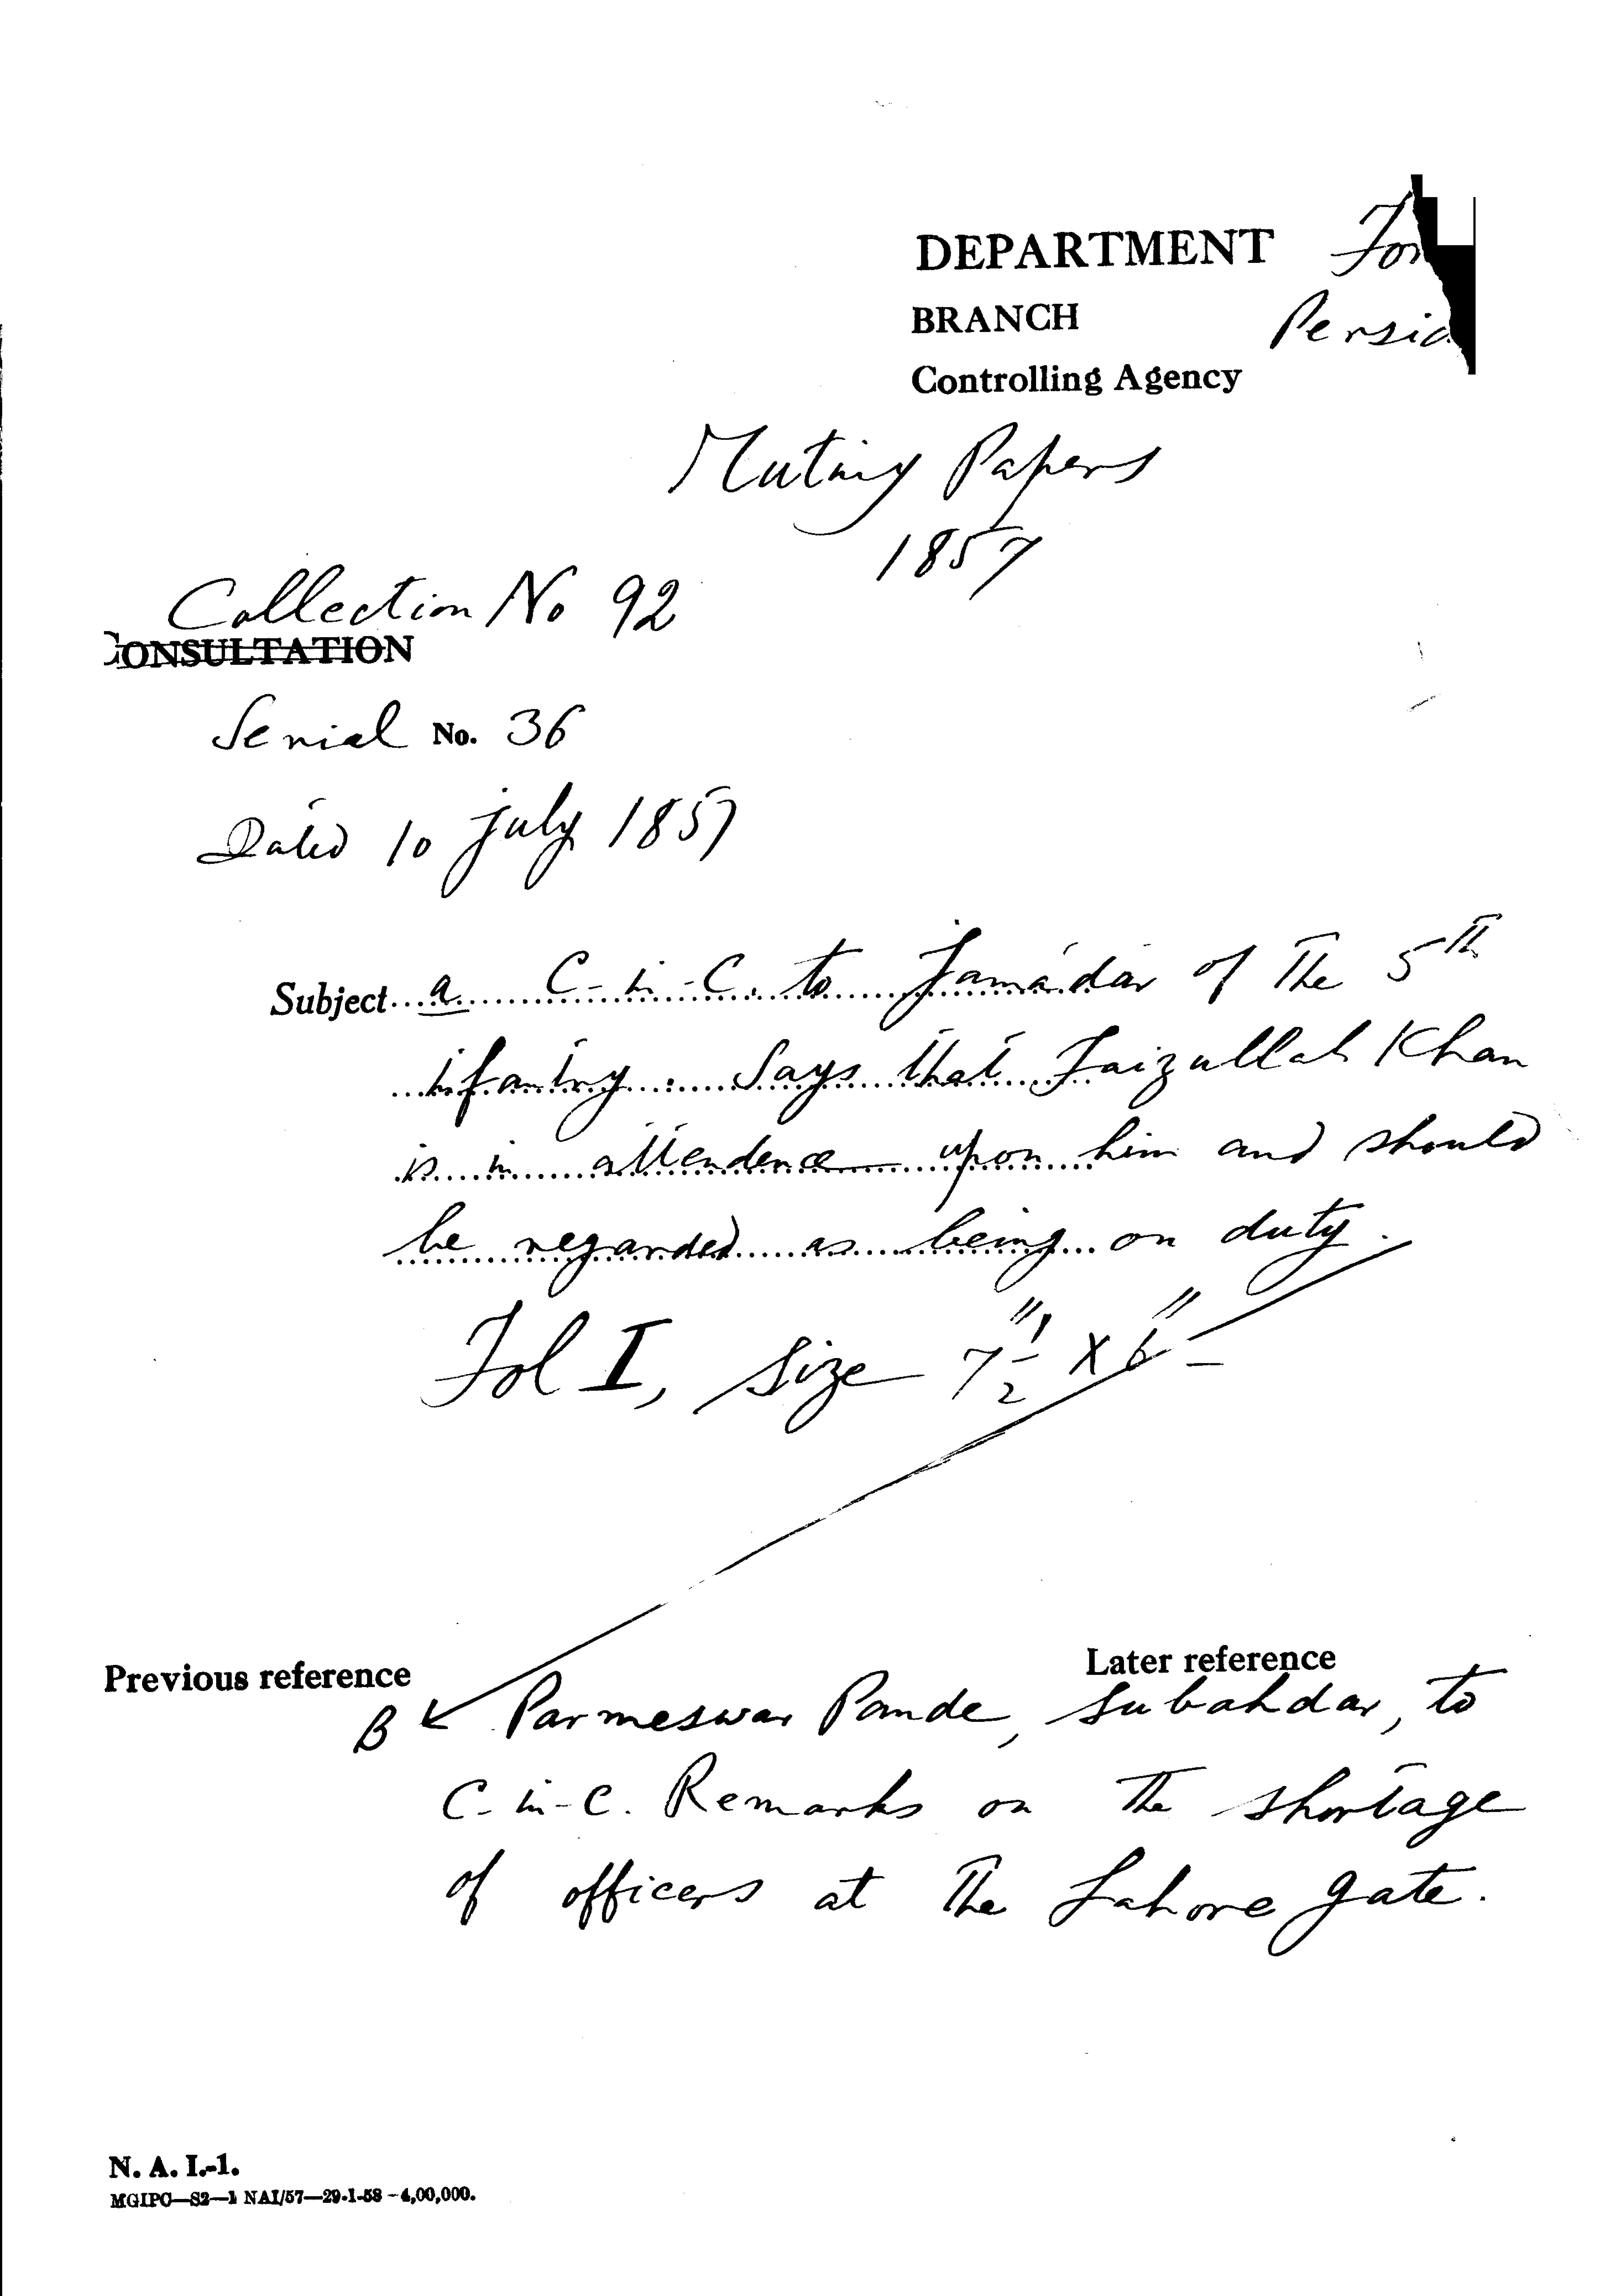 DEPARTMENT For
BRANCH Persia
Controlling Agency
Mutiny Papers
1857
Collection No 92
CONSULTATION
Serial No. 36
Dated 10 july 1857
Subject...a C-in-C. to Jamadar of The 5th
infantry. Says that Faizullah Khan
is in attendence upon him and should
be regarded as being on duty.
Fol I, size 7 1/2" X 6"
Previous reference
Later reference
B Parmeswar Pande, subahdar, to
C-in-C. Remarks on The shortage
of officers at The Lahore gate.
N. A. I.-1.
MGIPC—S2—1 NAI/57—29-1-58—4,00,000.